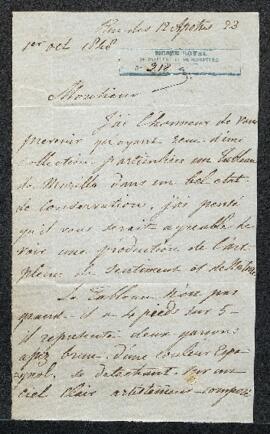 Rue des 12 Apôtres 23
1er oct 1848
MUSÉE ROYAL
218
Monsieur
J'ai l'honneur de vous
prévenir qu'ayant reçu d'une
collection particulière un tableau
de Murillo dans un bel état
de conservation, j'ai pensé
qu'il vous serait agréable de
voir une production de l'art
pleine de sentiment et de
Le tableau n'est pas
grand – il a 4 pieds sur 5 –
il représente deux garçons
assez bruns d'une couleur espa
gnol, se détachant sur un
ciel clair artistement composé